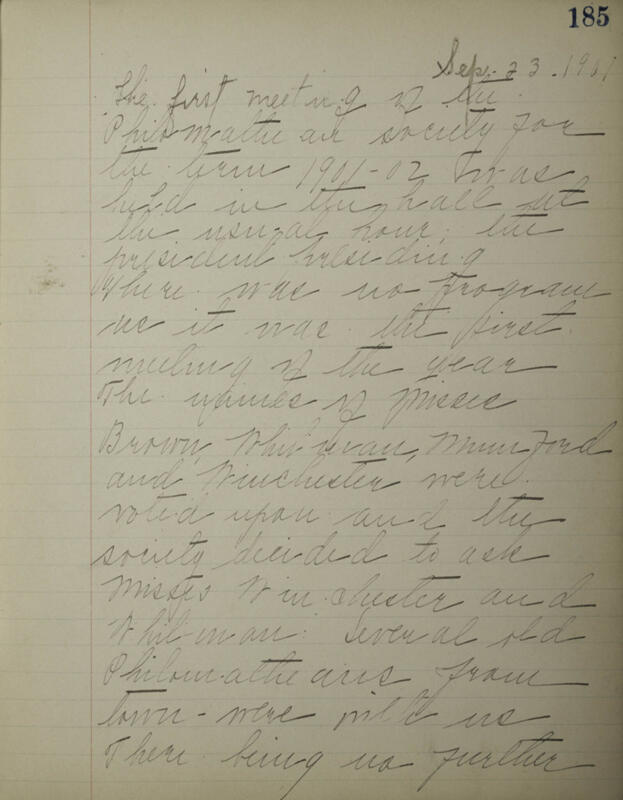 185
Sep. 23. 1901
The first meeting of the
Philomathean society for
the term 1901-02 was
held in the hall at
the usual hour; the
president presiding
There was no program
as it was the first
meeting of the year
The names of Misses
Brown, Whitman, Mumford
and Winchester were
voted upon and the
society decided to ask
Misses Winchester and
Whitman. Several old
Philomatheans from
town were with us
There being no further